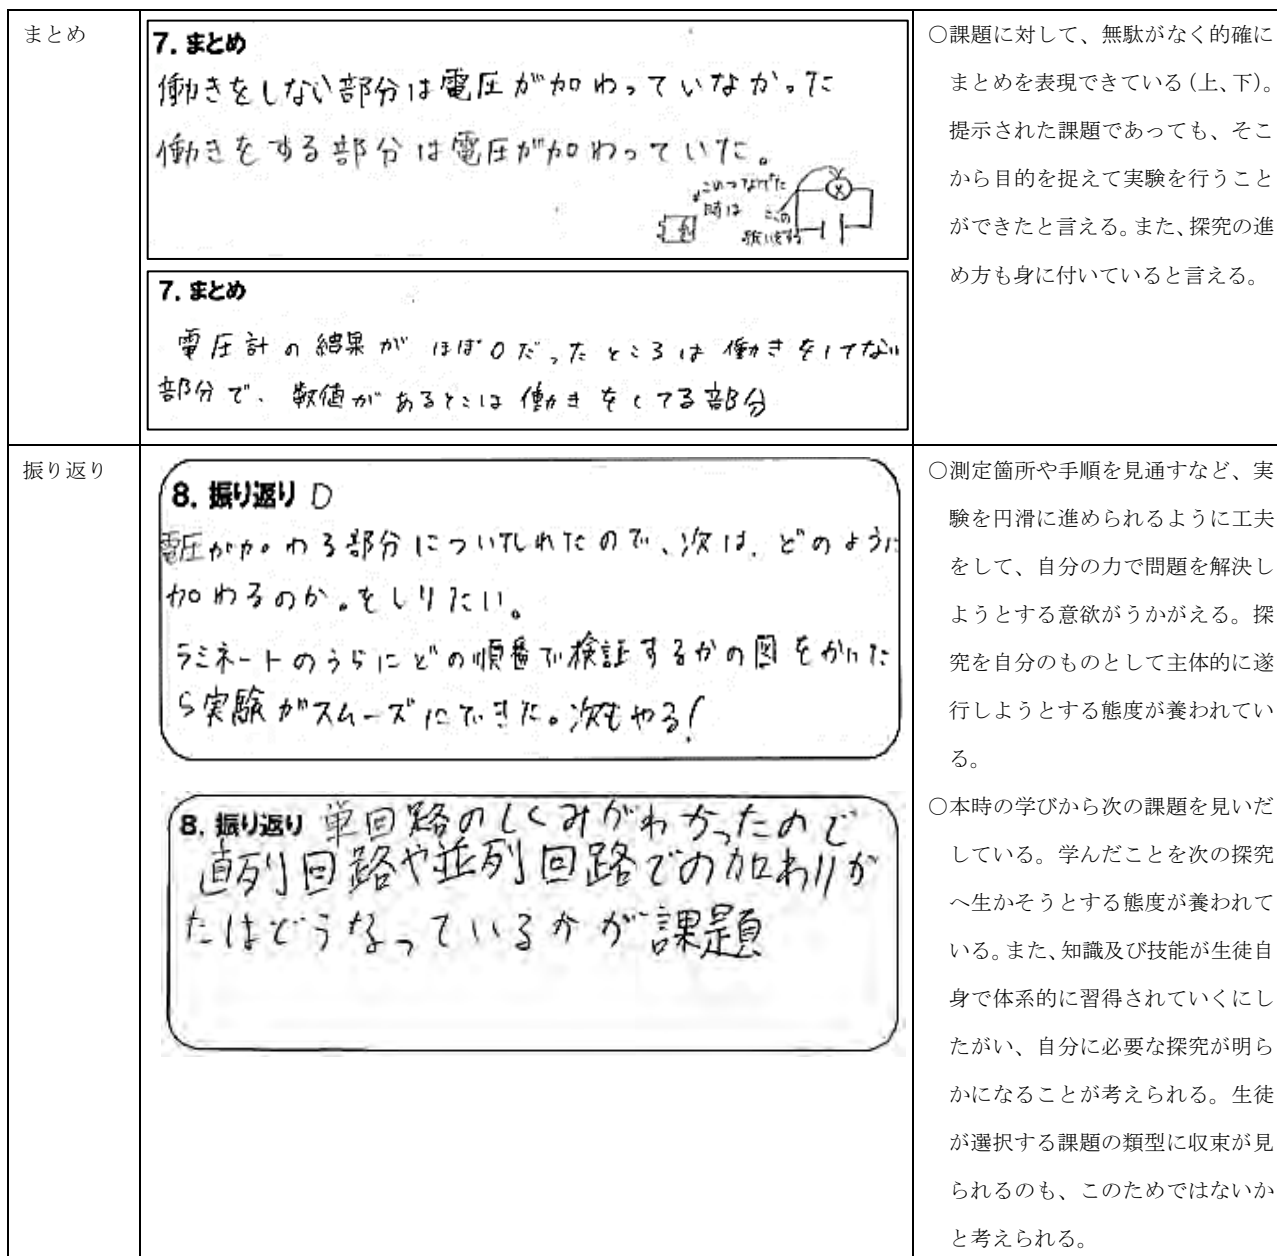 まとめ
7. まとめ
働きをしない部分は電圧が加わっていなかった
働きをする部分は電圧が加わっていた。
このつなげた
時は
ここの
7. まとめ
電圧計の結果がほぼ0だったところは働きをしてない
部分で、数値があるとこは働きをしてる部分
○課題に対して、無駄がなく的確に
まとめを表現できている(上、下)。
提示された課題であっても、そこ
から目的を捉えて実験を行うこと
ができたと言える。また、探究の進
め方も身に付いていると言える。
振り返り
8. 振り返り D
電圧が加わる部分についてしれたので、次は、どのように
加わるのか。をしりたい。
ラミネートのうらにどの順番で検証するかの図をかいた
ら実験がスムーズにできた。次もやる!
8. 振り返り 単回路のしくみがわかったので
直列回路や並列回路での加わりか
たはどうなっているかが課題
○測定箇所や手順を見通すなど、実
験を円滑に進められるように工夫
をして、自分の力で問題を解決し
ようとする意欲がうかがえる。探
究を自分のものとして主体的に遂
行しようとする態度が養われてい
る。
○本時の学びから次の課題を見いだ
している。学んだことを次の探究
へ生かそうとする態度が養われて
いる。また、知識及び技能が生徒自
身で体系的に習得されていくにし
たがい、自分に必要な探究が明ら
かになることが考えられる。生徒
が選択する課題の類型に収束が見
られるのも、このためではないか
と考えられる。